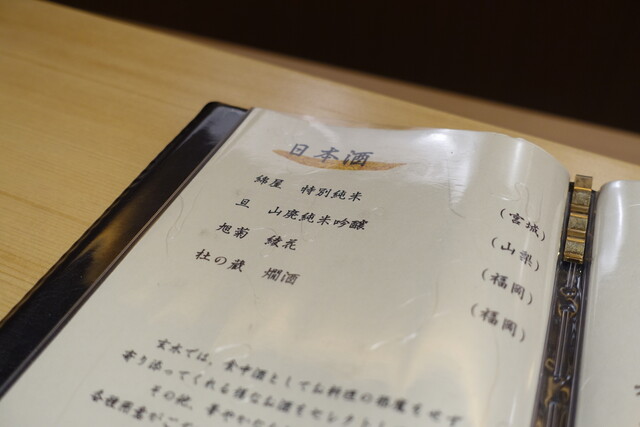 日本酒
綿屋 特別純米 (宮城)
旦 山廃純米吟醸 (山梨)
旭菊 綾花 (福岡)
杜の蔵 燗酒 (福岡)
玄水では、食中酒としてお料理の邪魔をせず
寄り添ってくれる様なお酒をセレクトし
その他、華やかな
各種用意が